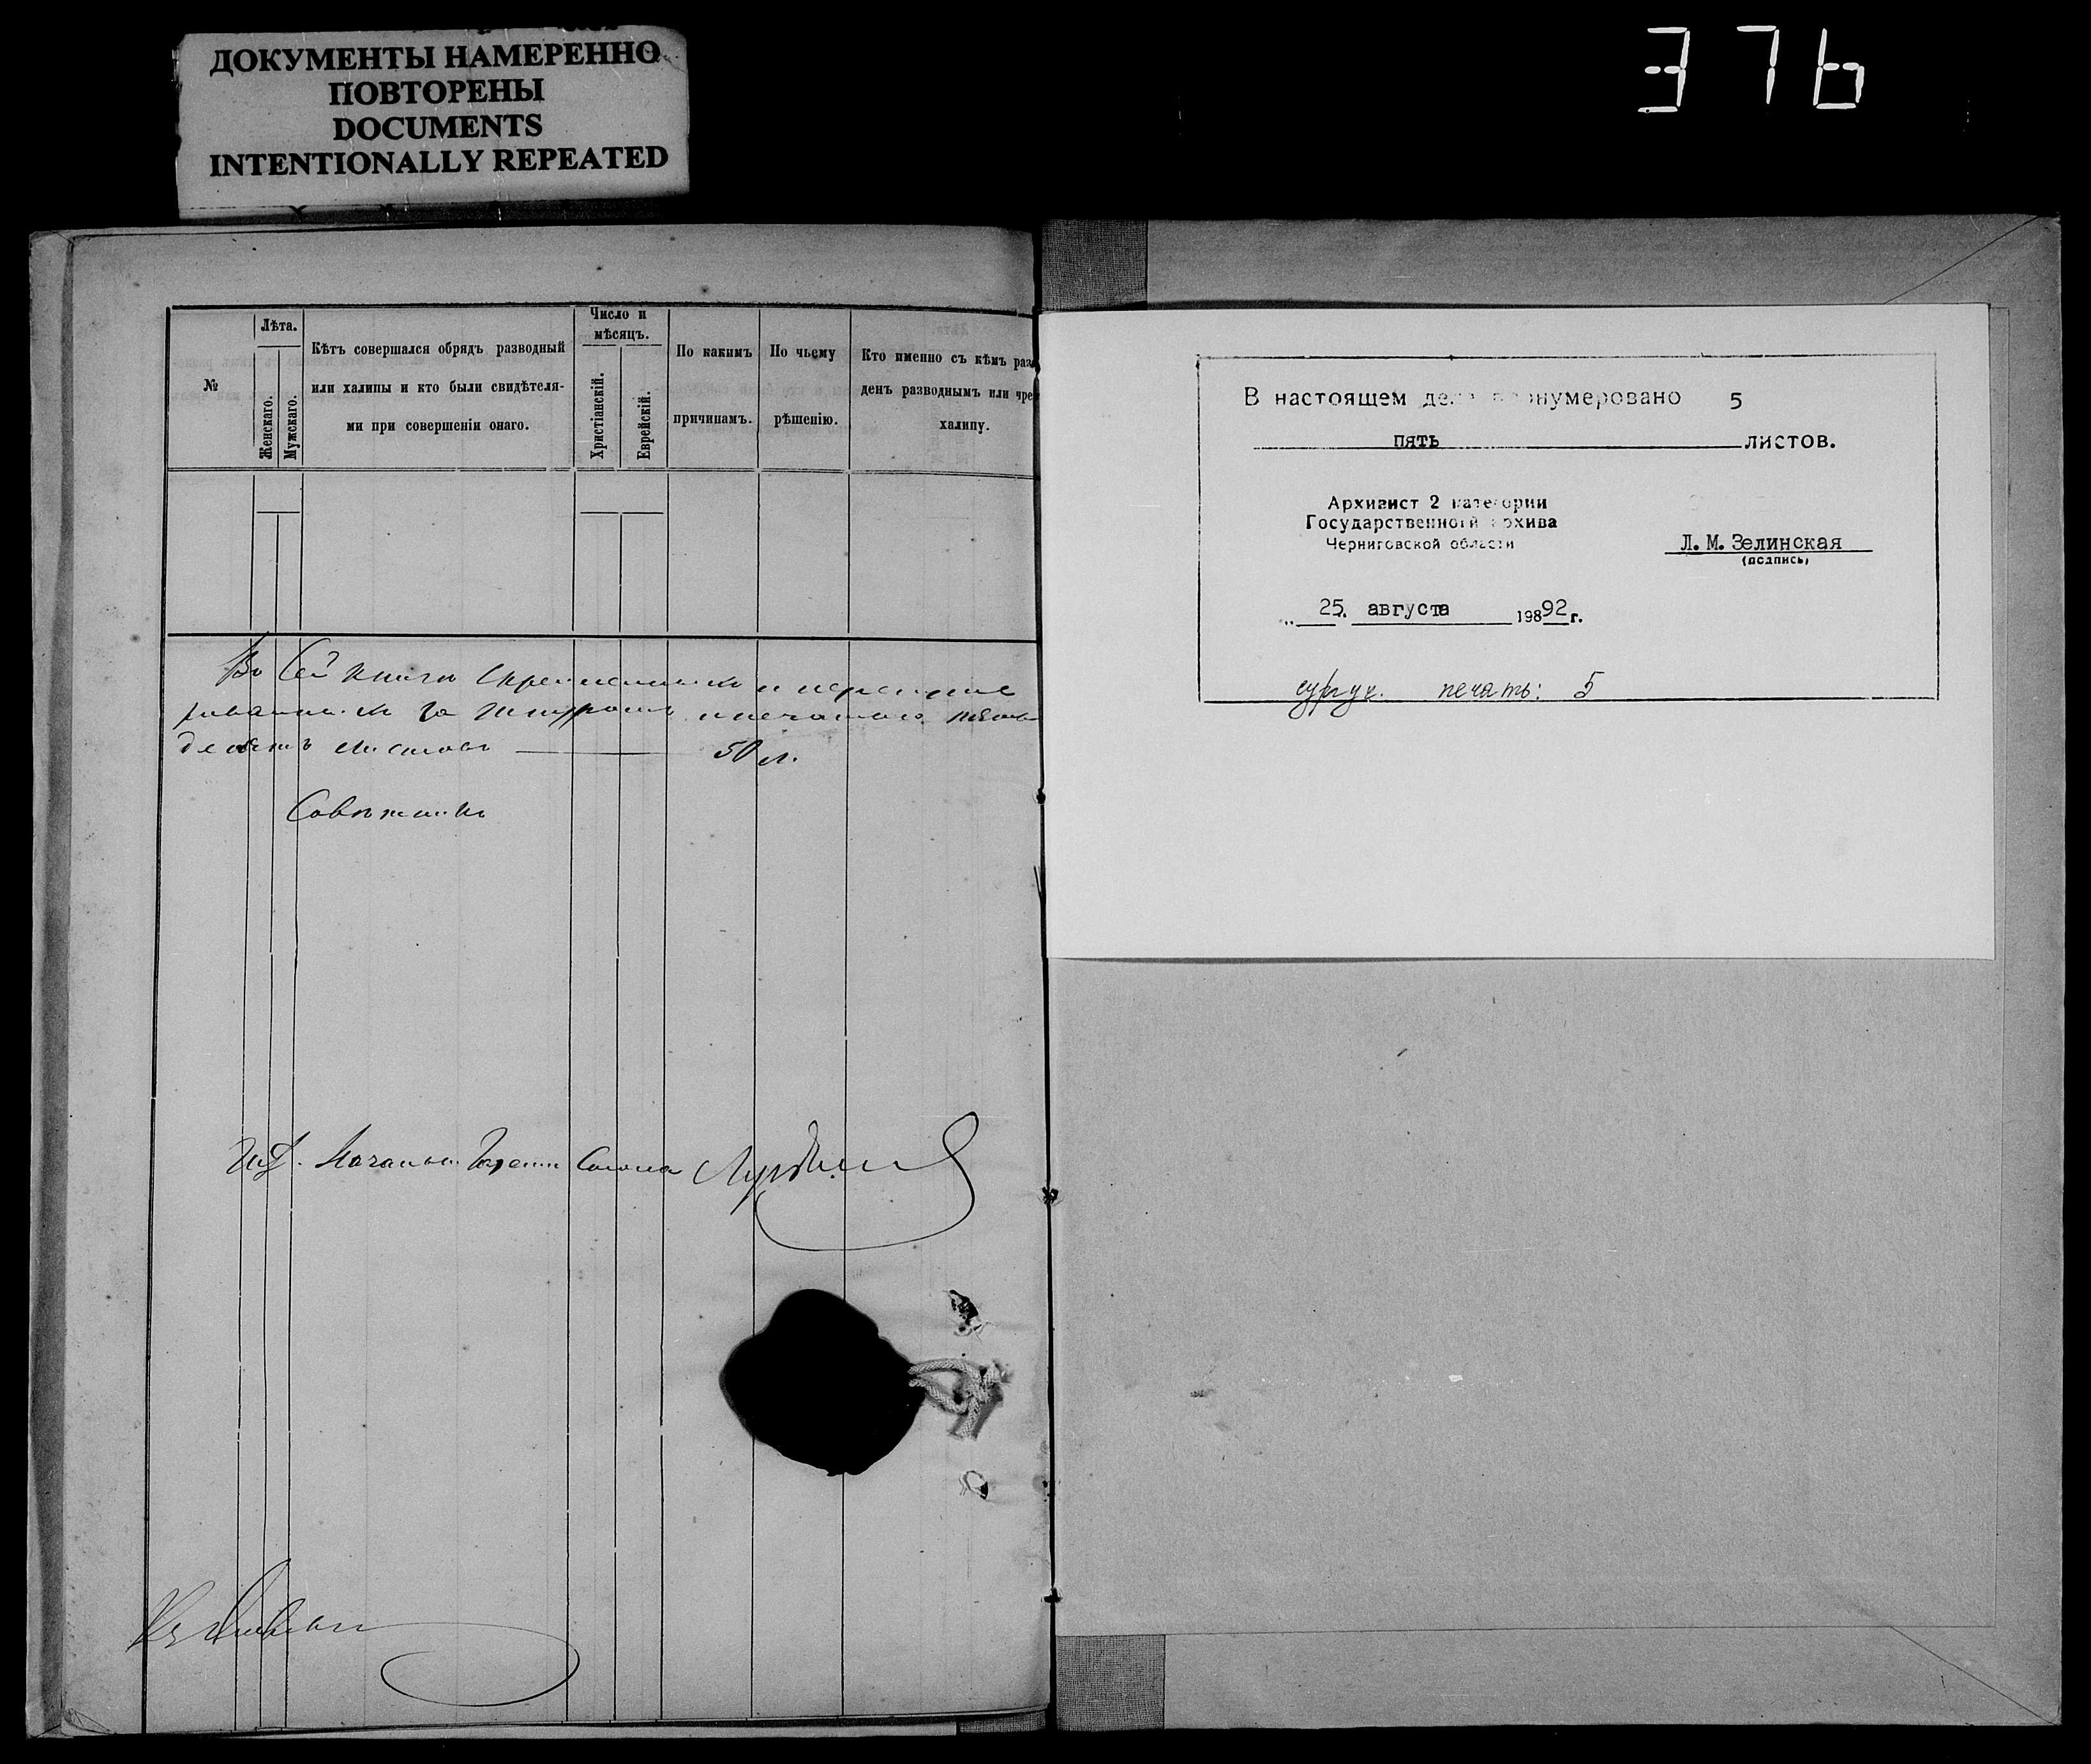 ДОКУМЕНТЫ НАМЕРЕННО
ПОВТОРЕНЫ
DOCUMENTS
INTENTIONALLY REPEATED
376
№
Лѣта.
Женскаго.
Мужскаго.
Кѣтъ совершался обрядъ разводный
или халипы и кто были свидѣтеля-
ми при совершеніи онаго.
Число и
мѣсяцъ.
Христіанскій.
Еврейскій.
По какимъ
причинамъ.
По чьему
рѣшенію.
Кто именно съ кѣмъ раз
денъ разводнымъ или чре
халипу.
Во сей книги скрепленныхъ и перенуме
рованныхъ за шнуромъ и печатью пять
десятъ листовъ 50 л.
Совѣтникъ
В настоящем деле пронумеровано 5
пять листов.
Архивист 2 категории
Государственного архива
Черниговской области
Л. М. Зелинская
(подпись)
„ 25. августа 19892 г.
сургуч. печать: 5